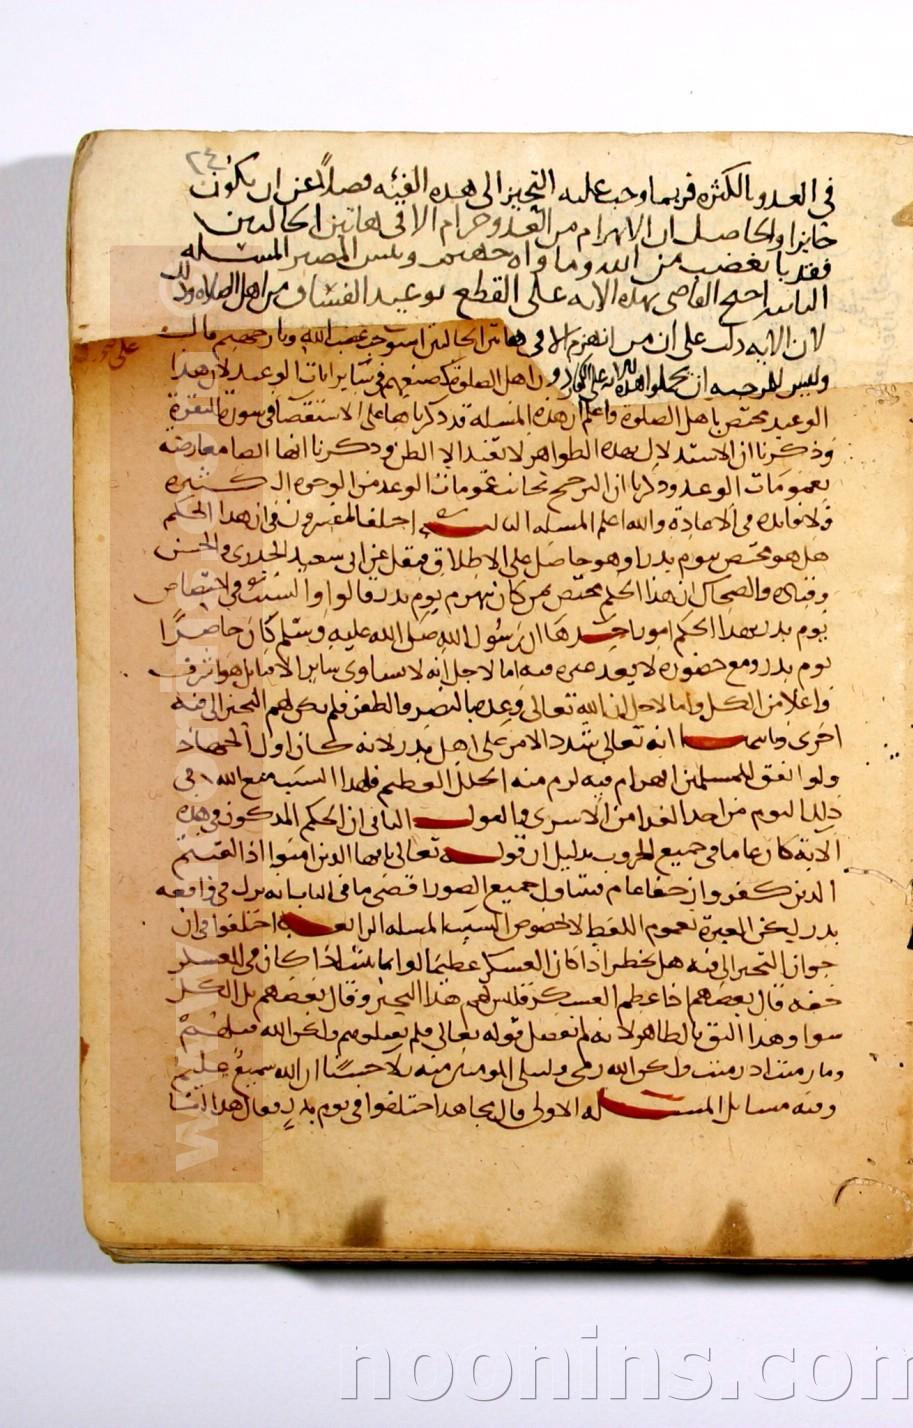 ٢٤
في العدو الكثرة فربما وجب عليه التحيز الى هذه الفئه فضلا عن ان يكون
جايزا والحاصل ان الانهزام من العدو حرام الا في هاتين الحالتين
فقد با بغضب من الله وماواه جهنم وبئس المصير المسئله
الثانيه احتج القاضي بهذه الايه على القطع بوعيد الفساق من اهل الصلاه وذلك
لان الايه دلت على ان من انهزم الا في هاتين الحالتين استوجب غضب الله ونار جهنم قال
وليس للمرجيه ان يحملوا هذه الايه على الكفار دون اهل الصلوة كصنيعهم في ساير ايات الوعيد لان هذا
على
الوعيد مختص باهل الصلوة واعلم ان هذه المسلة قد ذكرناها على الاستقصا في سورة البقرة
وذكرنا ان الاستدلال بهذه الظواهر لا تفيد الا الظن وذكرنا انها ايضا معارضة
بعمومات الوعد وذكرنا ان الترجيح بجانب عمومات الوعد من الوجوه الكثيره
فلا فايده في الاعادة والله اعلم المسله الثالثة اختلف المفسرون في ان هذا الحكم
هل هو مختص بيوم بدر او هو حاصل على الاطلاق فنقل عن ابي سعيد الخدري والحسن
وقتاده والضحاك ان هذا الحكم مختص بمن كان انهزم يوم بدر قالوا والسبب في اختصاص
يوم بدر بهذا الحكم امور احدها ان رسول الله صلى الله عليه وسلم كان حاضرا
يوم بدر ومع حضوره لا يعد غيره فيه اما لاجل انه لا يساوى بساير الفيات بل هو اشرف
واعلا من الكل واما لاجل ان الله تعالى وعده بالنصر والظفر فلم يكن لهم التحيز الى فئة
اخرى وثانيها انه تعالى شدد الامر على اهل بدر لانه كان اول الجهاد
ولو اتفق للمسلمين انهزام فيه لزم منه الخلل العظيم فلهذا السبب منع الله في
ذلك اليوم من اخذ الفدا من الاسرى والقول الثاني ان الحكم المذكور في هذه
الاية كان عاما في جميع الحروب بدليل ان قوله تعالى يايها الذين امنوا اذا لقيتم
الذين كفروا زحفا عام فيتناول جميع الصور اقصى ما في الباب انه نزل في واقعه
بدر لكن العبرة بعموم اللفظ لا بخصوص السبب المسله الرابعة اختلفوا في ان
جواز التحيز الى فئه هل يحظر اذا كان العسكر عظيما او انما يثبت اذا كان في العسكر
خفه قال بعضهم اذا عظم العسكر فليس لهم هذا التحيز وقال بعضهم بل الكل
سوا وهذا اليق بالظاهر لانه لم يفصل قوله تعالى فلم تقتلوهم ولكن الله قتلهم
وما رميت اذ رميت ولكن الله رمى وليبلى المومنين منه بلا حسنا ان الله سميع عليم
وفيه مسايل المسئله الاولى قال مجاهد اختلفوا في يوم بدر فقال هذا انا
www.noonins.com
noonins.com